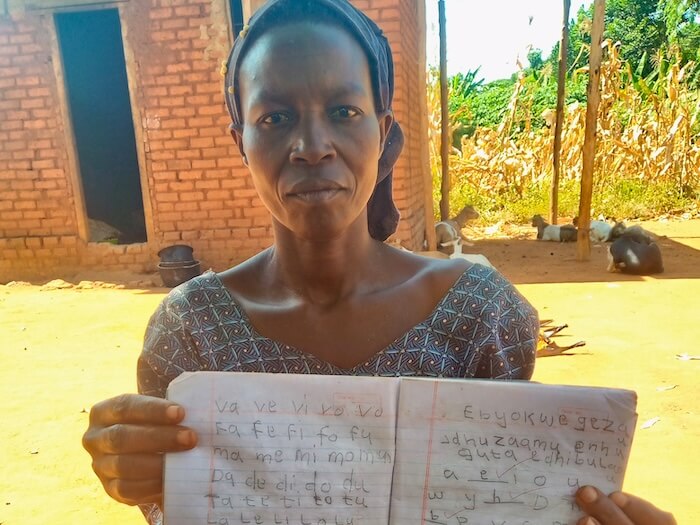 va ve vi vo vo
Fa fe fi fo fu
ma me mi mo mu
Da de di do du
Ta te ti to tu
La le li lo lu
Ebyokwegeza
adhuzaamu enhu
guta edhibula
a e i o u
w y h D